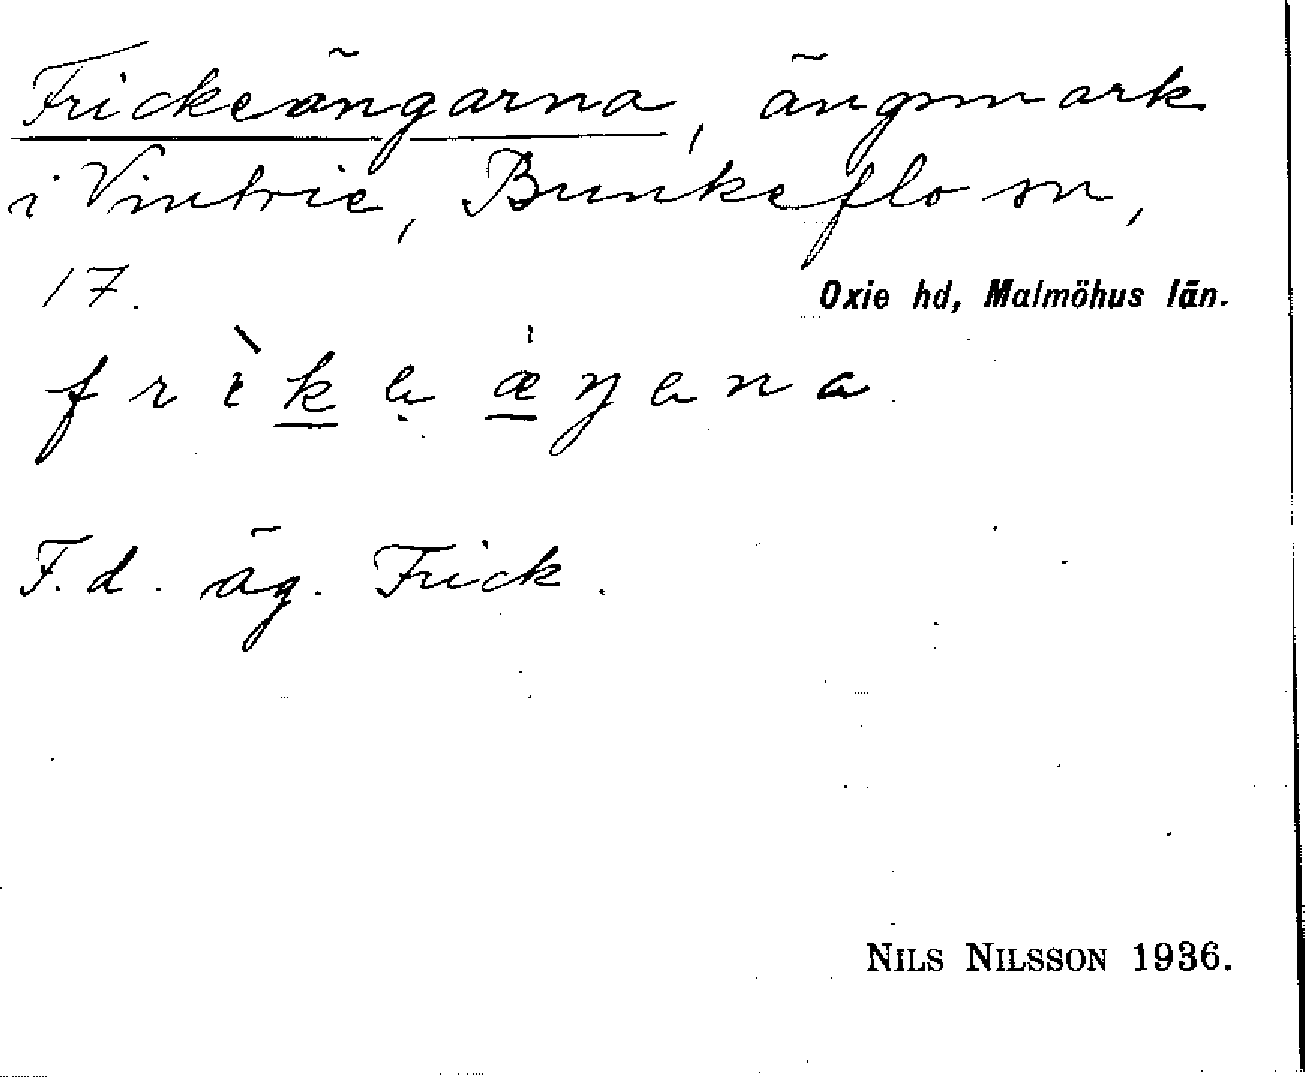 Frickeängarna, ängsmark
i Vintrie, Bunkeflo sn,
17.
Oxie hd, Malmöhus län.
F.d. äg. Frick.
NILS NILSSON 1936.